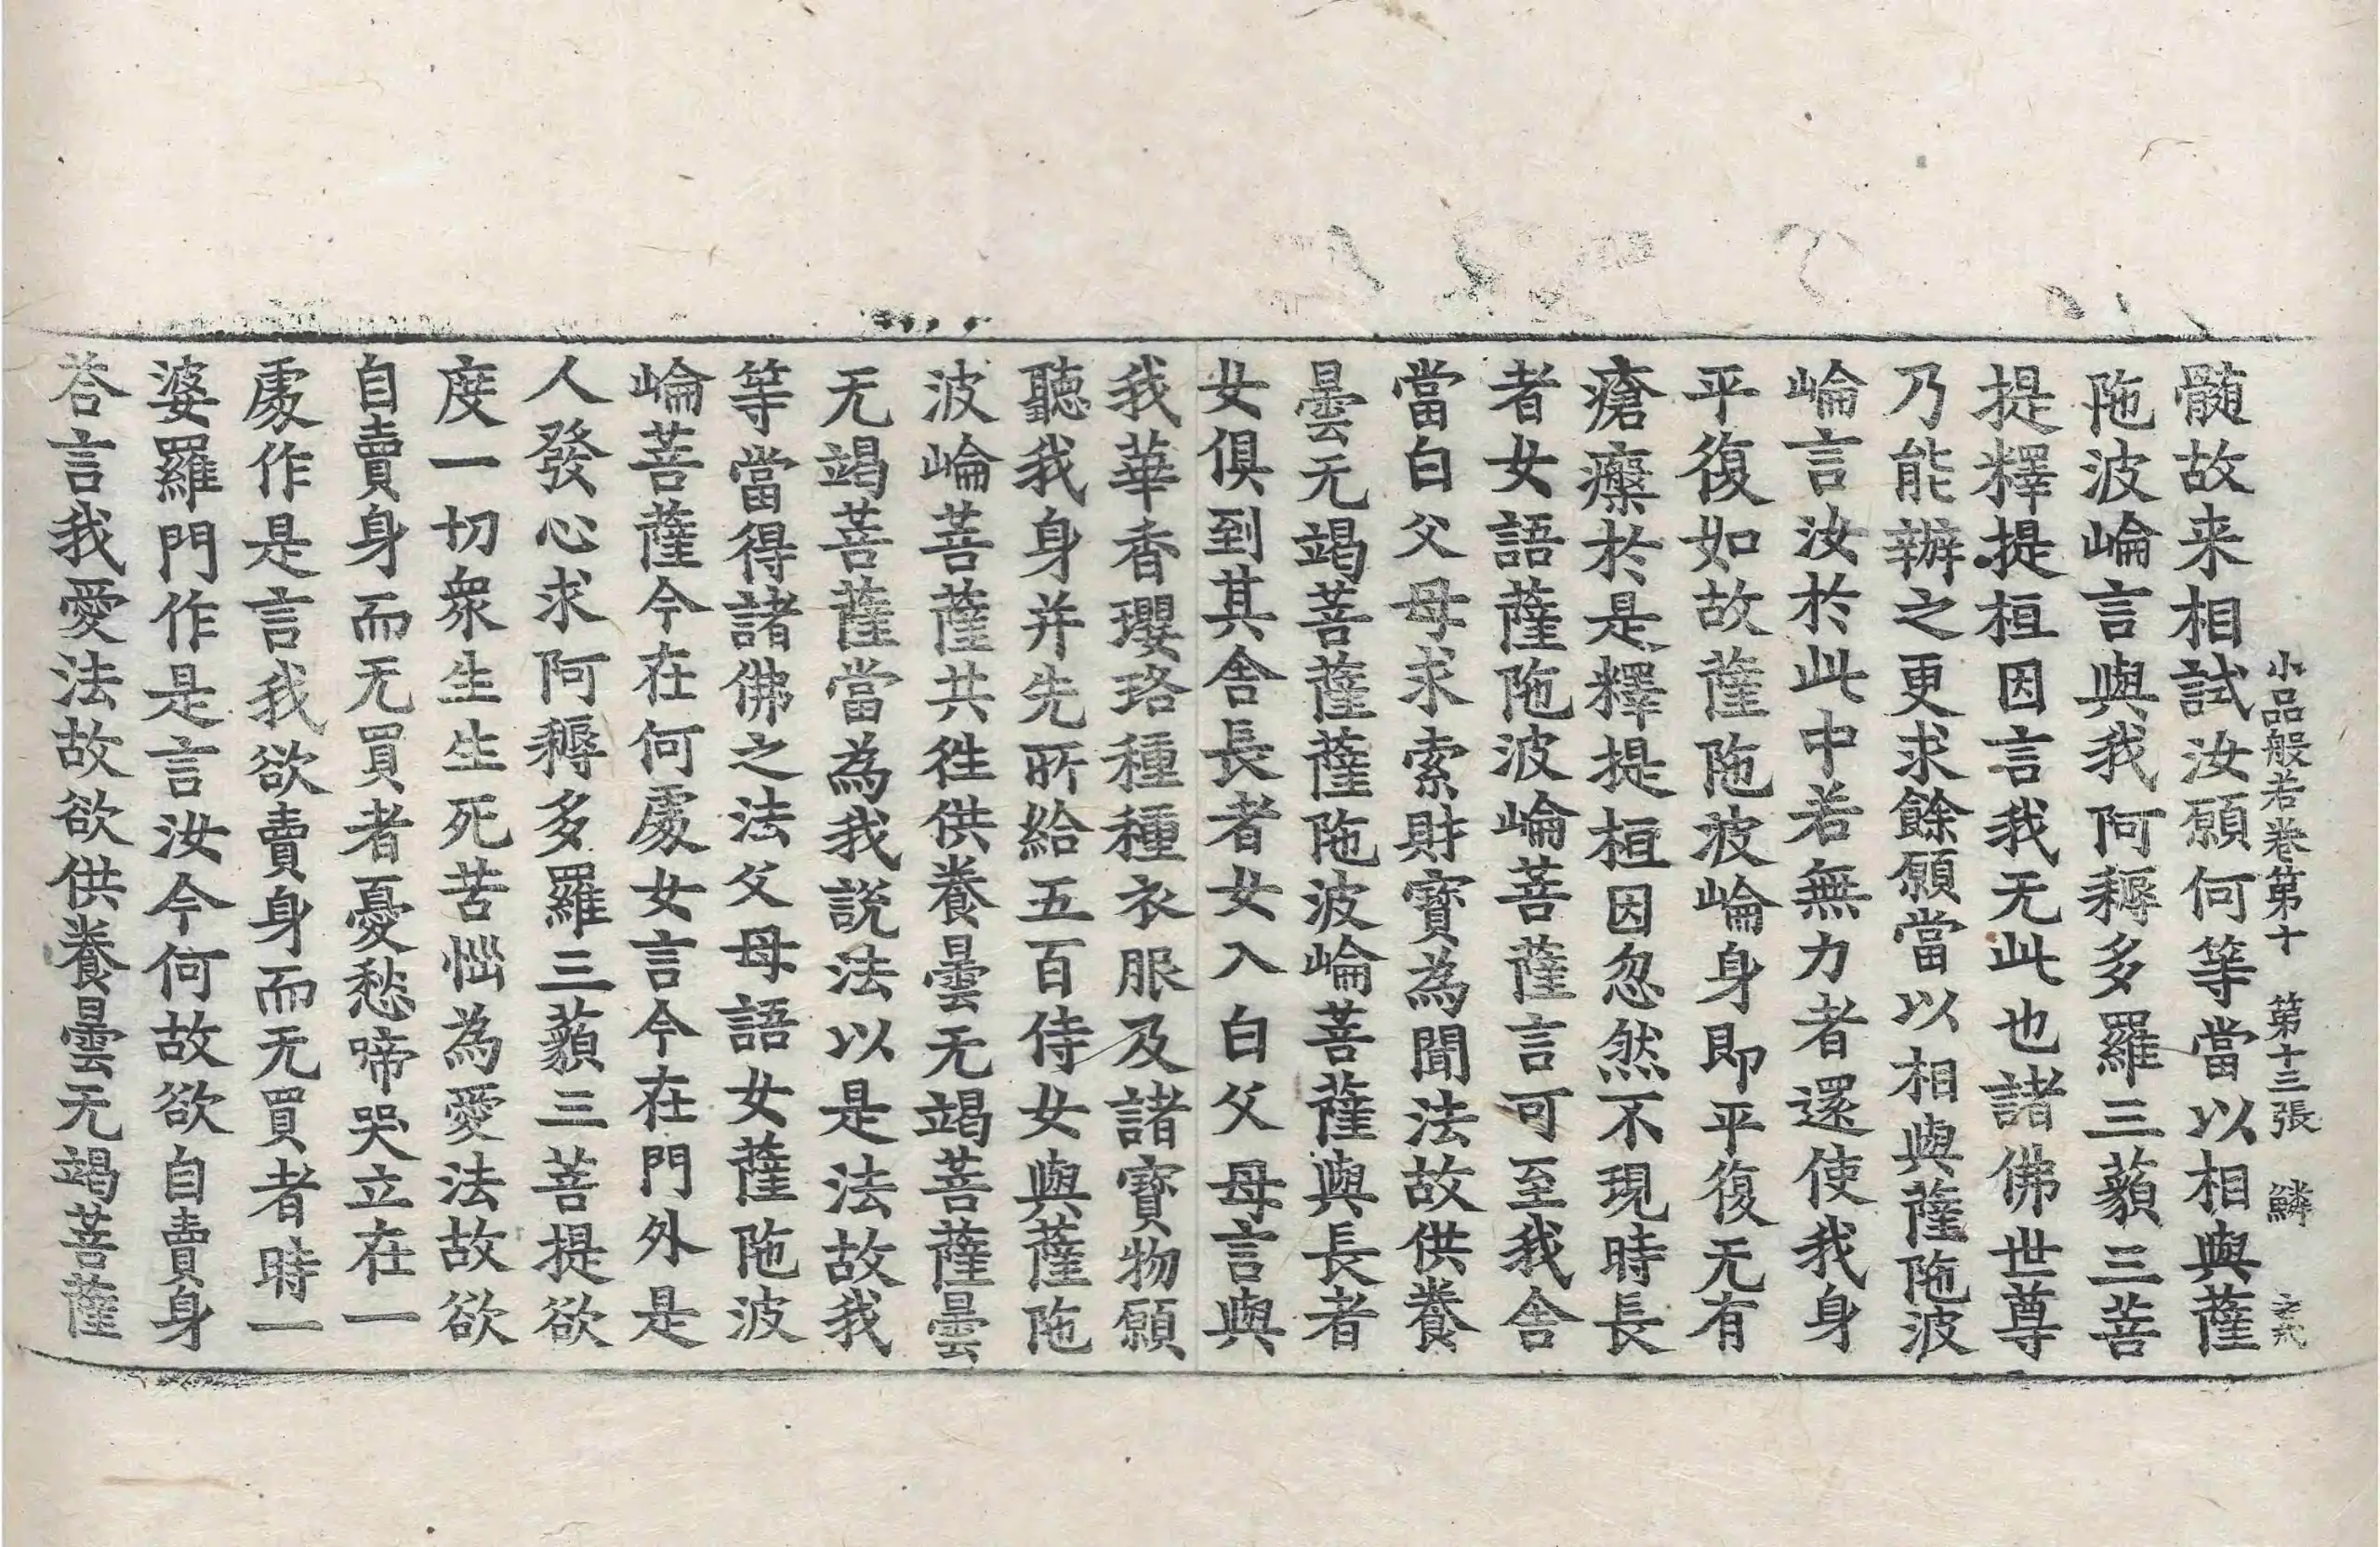 小品般若卷第十　第十三張　鱗
髓故来相試汝願何等當以相與薩
陁波崘言與我阿耨多羅三藐三菩
提釋提桓因言我无此也諸佛世尊
乃能辦之更求餘願當以相與薩陁波
崘言汝於此中若無力者還使我身
平復如故薩陁波崘身即平復无有
瘡瘢於是釋提桓因忽然不現時長
者女語薩陁波崘菩薩言可至我舍
當白父母求索財寶為聞法故供養
曇无竭菩薩薩陁波崘菩薩與長者
女俱到其舍長者女入白父母言與
我華香瓔珞種種衣服及諸寶物願
聽我身并先所給五百侍女與薩陁
波崘菩薩共徃供養曇无竭菩薩曇
无竭菩薩當為我說法以是法故我
等當得諸佛之法父母語女薩陁波
崘菩薩今在何處女言今在門外是
人發心求阿耨多羅三藐三菩提欲
度一切衆生生死苦惱為愛法故欲
自賣身而无買者憂愁啼哭立在一
處作是言我欲賣身而无買者時一
婆羅門作是言汝今何故欲自賣身
荅言我愛法故欲供養曇无竭菩薩